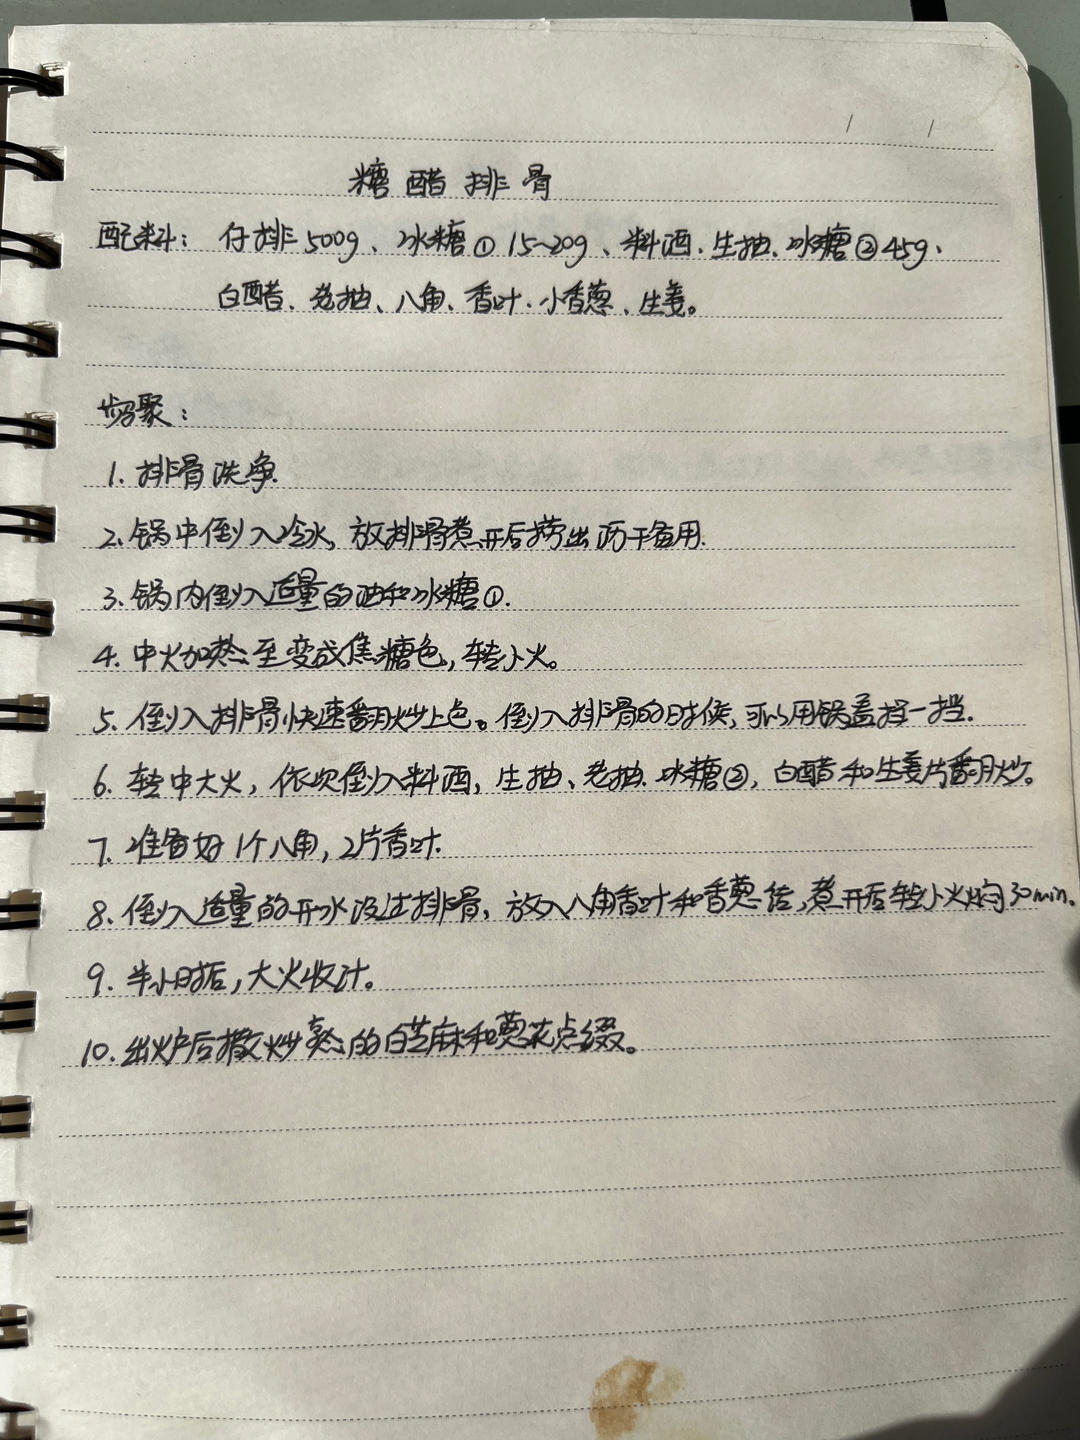 糖醋排骨
配料：仔排500g、冰糖①15~20g、料酒、生抽、冰糖②45g、
白醋、老抽、八角、香叶、小香葱、生姜。
步骤：
1. 排骨洗净.
2. 锅中倒入冷水, 放排骨煮开后捞出沥干备用.
3. 锅内倒入适量的油和冰糖①.
4. 中火加热至变成焦糖色, 转小火。
5. 倒入排骨快速翻炒上色。倒入排骨的时候, 可以用锅盖挡一挡.
6. 转中大火, 依次倒入料酒, 生抽、老抽、冰糖②, 白醋和生姜片翻炒。
7. 准备好1个八角, 2片香叶.
8. 倒入适量的开水没过排骨, 放入八角香叶和香葱结, 煮开后转小火焖30min。
9. 半小时后, 大火收汁。
10. 出炉后撒炒熟的白芝麻和葱花点缀。